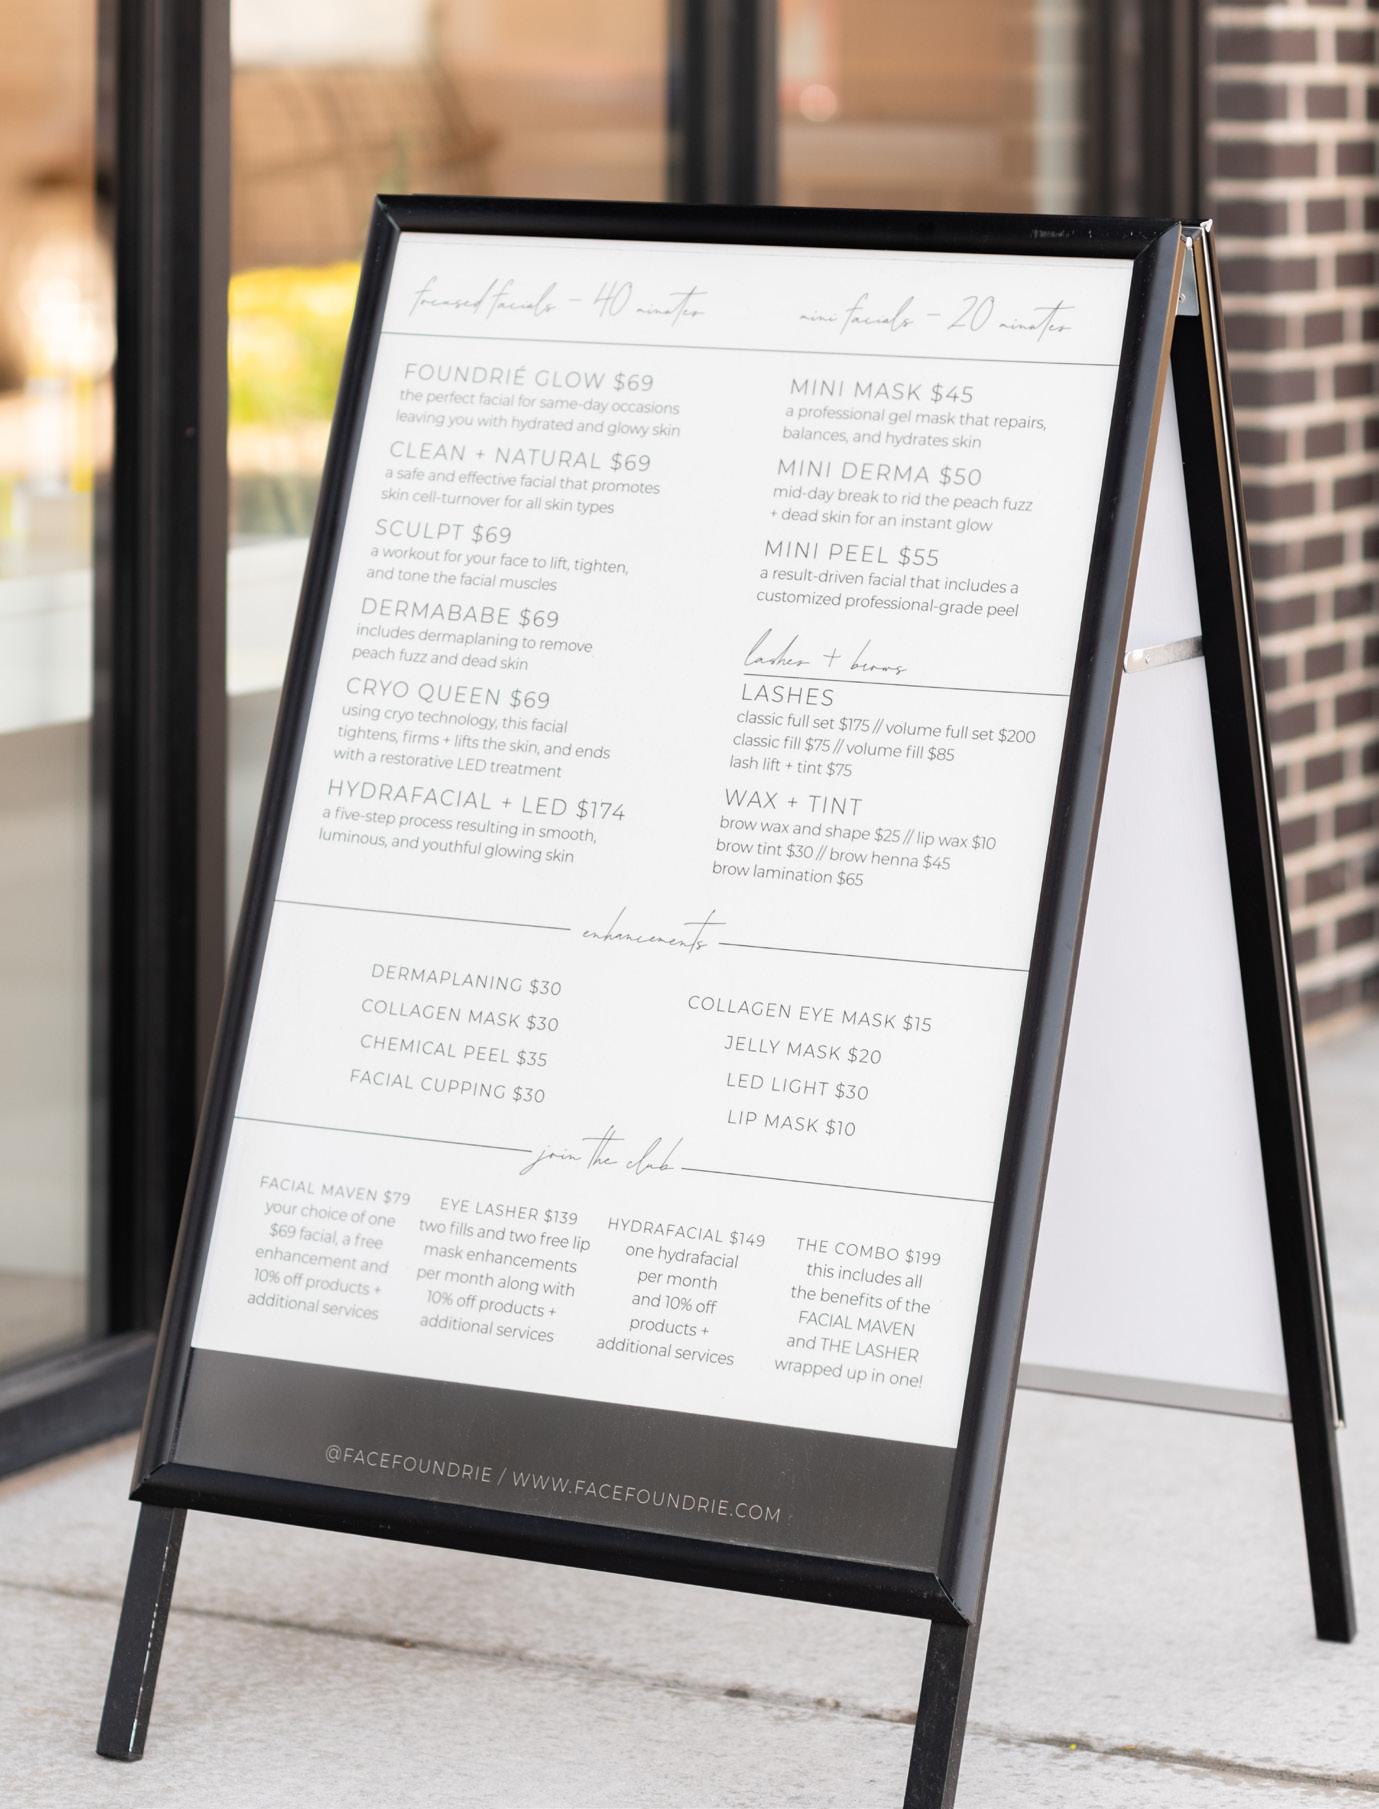 focused facials – 40 minutes
FOUNDRIÉ GLOW $69
the perfect facial for same-day occasions
leaving you with hydrated and glowy skin
CLEAN + NATURAL $69
a safe and effective facial that promotes
skin cell-turnover for all skin types
SCULPT $69
a workout for your face to lift, tighten,
and tone the facial muscles
DERMABABE $69
includes dermaplaning to remove
peach fuzz and dead skin
CRYO QUEEN $69
using cryo technology, this facial
tightens, firms + lifts the skin, and ends
with a restorative LED treatment
HYDRAFACIAL + LED $174
a five-step process resulting in smooth,
luminous, and youthful glowing skin
mini facials – 20 minutes
MINI MASK $45
a professional gel mask that repairs,
balances, and hydrates skin
MINI DERMA $50
mid-day break to rid the peach fuzz
+ dead skin for an instant glow
MINI PEEL $55
a result-driven facial that includes a
customized professional-grade peel
lashes + brows
LASHES
classic full set $175 // volume full set $200
classic fill $75 // volume fill $85
lash lift + tint $75
WAX + TINT
brow wax and shape $25 // lip wax $10
brow tint $30 // brow henna $45
brow lamination $65
enhancements
DERMAPLANING $30
COLLAGEN MASK $30
CHEMICAL PEEL $35
FACIAL CUPPING $30
COLLAGEN EYE MASK $15
JELLY MASK $20
LED LIGHT $30
LIP MASK $10
join the club
FACIAL MAVEN $79
your choice of one
$69 facial, a free
enhancement and
10% off products +
additional services
EYE LASHER $139
two fills and two free lip
mask enhancements
per month along with
10% off products +
additional services
HYDRAFACIAL $149
one hydrafacial
per month
and 10% off
products +
additional services
THE COMBO $199
this includes all
the benefits of the
FACIAL MAVEN
and THE LASHER
wrapped up in one!
@FACEFOUNDRIE / WWW.FACEFOUNDRIE.COM